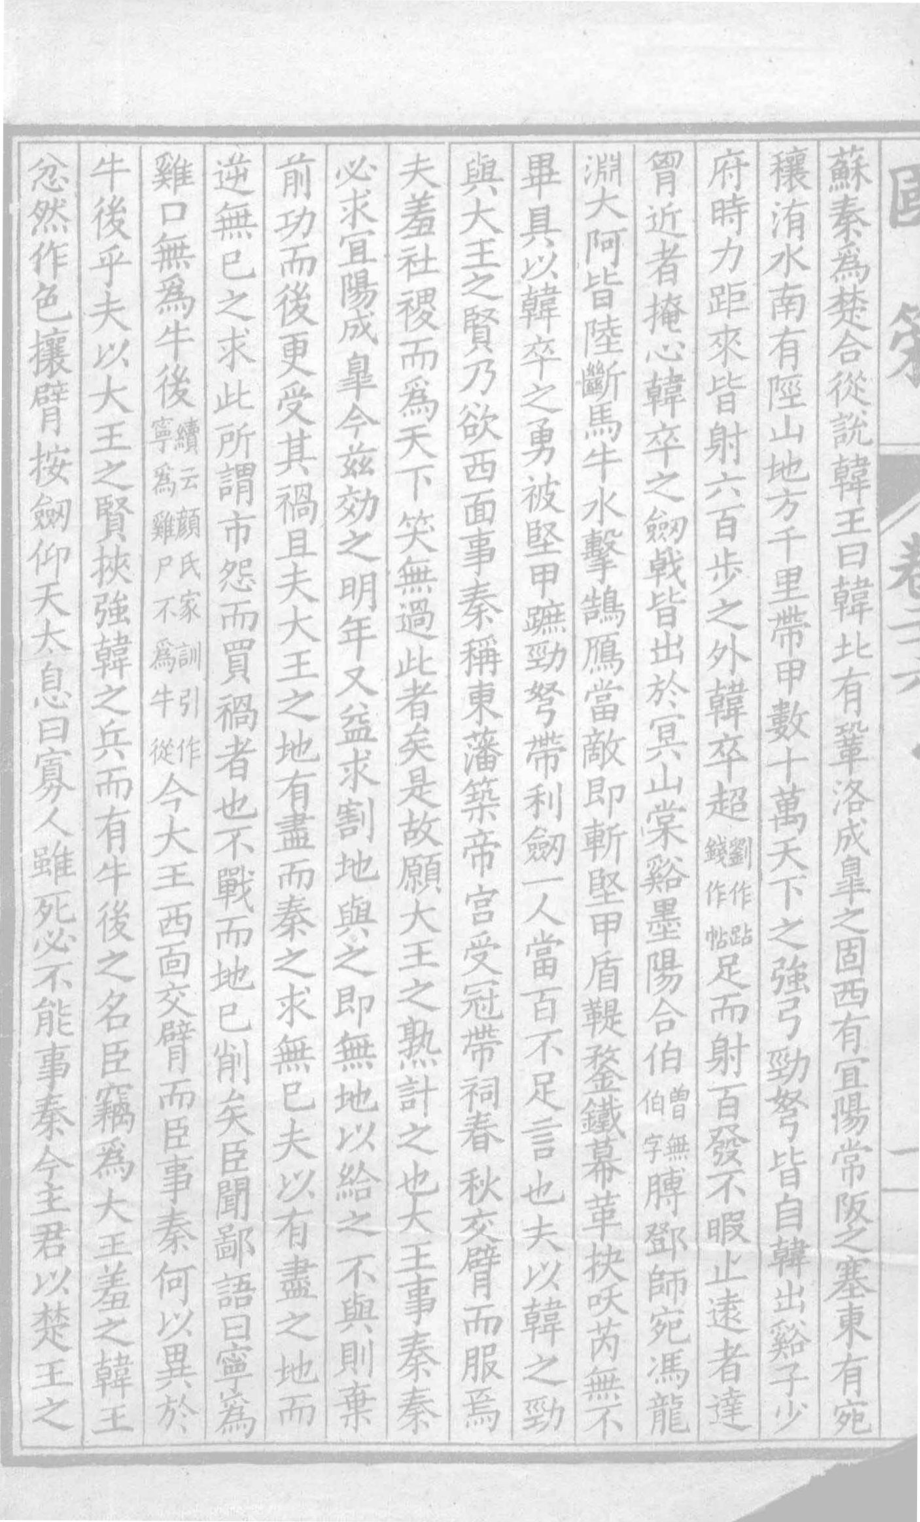 蘇秦為楚合從說韓王曰韓北有鞏洛成臯之固西有宜陽常阪之塞東有宛
穰洧水南有陘山地方千里帶甲數十萬天下之強弓勁弩皆自韓出谿子少
府時力距來皆射六百步之外韓卒超劉作跕錢作帖足而射百發不暇止逺者達
胷近者掩心韓卒之劔戟皆出於冥山棠谿墨陽合伯曽無伯字膊鄧師宛馮龍
淵大阿皆陸斷馬牛水擊鵠鴈當敵即斬堅甲盾鞮鍪鐵幕革抉㕹芮無不
畢具以韓卒之勇被堅甲蹠勁弩帶利劔一人當百不足言也夫以韓之勁
與大王之賢乃欲西面事秦稱東藩築帝宮受冠帶祠春秋交臂而服焉
夫羞社稷而為天下笑無過此者矣是故願大王之熟計之也大王事秦秦
必求宜陽成臯今兹効之明年又益求割地與之即無地以給之不與則棄
前功而後更受其禍且夫大王之地有盡而秦之求無已夫以有盡之地而
逆無已之求此所謂市怨而買禍者也不戰而地已削矣臣聞鄙語曰寧為
雞口無為牛後續云顔氏家訓引作寧為雞尸不為牛從今大王西面交臂而臣事秦何以異於
牛後乎夫以大王之賢挾強韓之兵而有牛後之名臣竊為大王羞之韓王
忿然作色攘臂按劔仰天太息曰寡人雖死必不能事秦今主君以楚王之